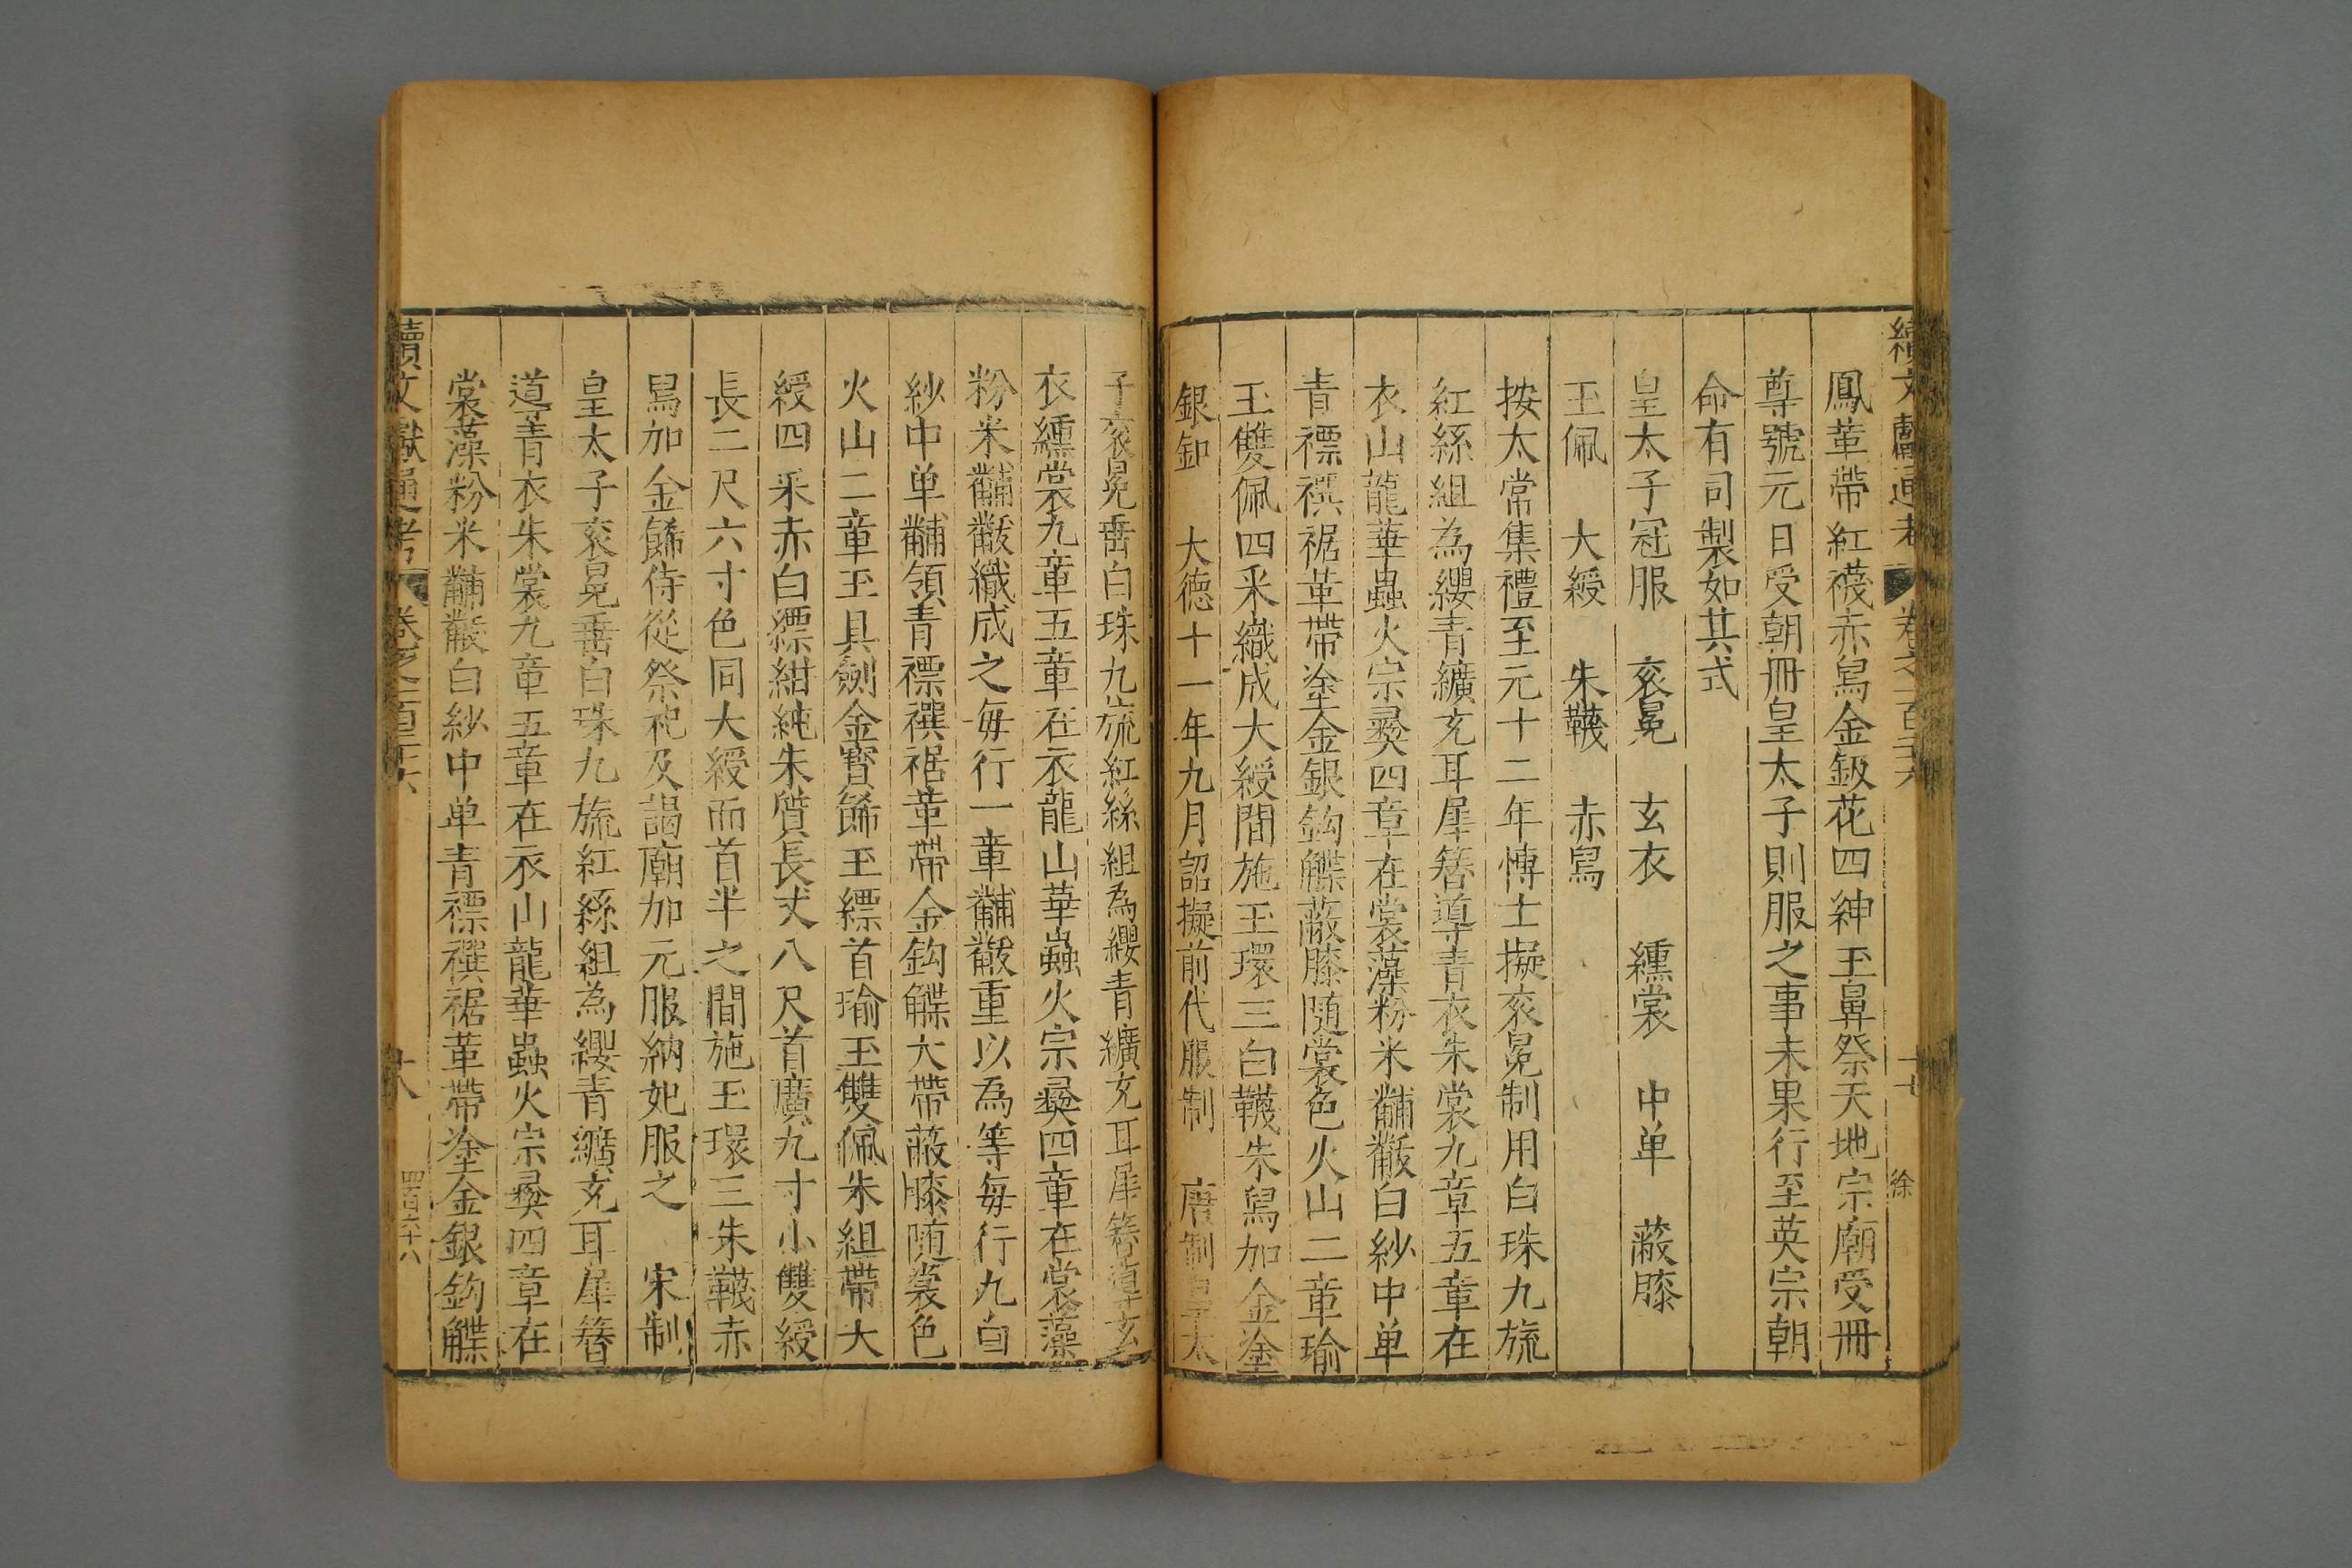 續文獻通考 卷之一百二六 十七 徐
鳳革帶紅襪赤舄金鈒花四紳玉鼻祭天地宗廟受冊
尊號元日受朝冊皇太子則服之事未果行至英宗朝
命有司製如其式
皇太子冠服 衮冕 玄衣 纁裳 中单 蔽膝
玉佩 大綬 朱韈 赤舄
按太常集禮至元十二年博士擬衮冕制用白珠九旒
紅絲組為纓青纊充耳犀簪導青衣朱裳九章五章在
衣山龍華蟲火宗彞四章在裳藻粉米黼黻白紗中单
青褾襈裾革帶塗金銀鈎䚢蔽膝随裳色火山二章瑜
玉雙佩四采織成大綬間施玉環三白韈朱舄加金塗
銀釦 大德十一年九月詔擬前代服制 唐制皇太
子衮冕垂白珠九旒紅絲組為纓青纊充耳犀簪導玄
衣纁裳九章五章在衣龍山華蟲火宗彞四章在裳藻
粉米黼黻織成之每行一章黼黻重以為等每行九白
紗中单黼領青褾襈裾革帶金鈎䚢大帶蔽膝随裳色
火山二章玉具劍金寶飾玉鏢首瑜玉雙佩朱組帶大
綬四采赤白縹紺純朱質長丈八尺首廣九寸小雙綬
長二尺六寸色同大綬而首半之間施玉環三朱韈赤
舄加金飾侍從祭祀及謁廟加元服納妃服之 宋制
皇太子衮冕垂白珠九旒紅絲組為纓青纊充耳犀簪
導青衣朱裳九章五章在衣山龍華蟲火宗彞四章在
裳藻粉米黼黻白紗中单青褾襈裾革帶塗金銀鈎䚢
續文獻通考 卷之一百二六 十八 四百六十八